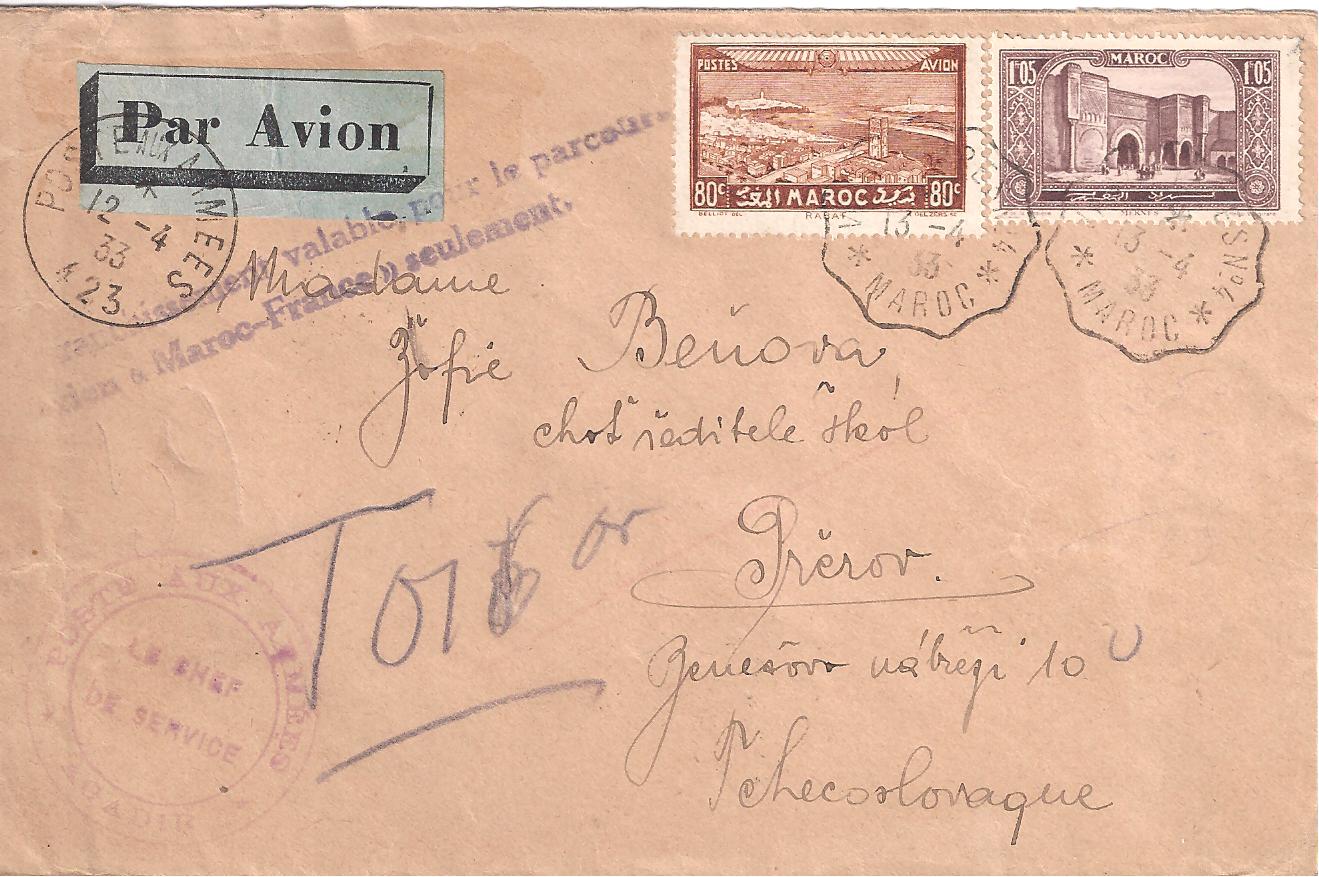 Par Avion
POSTE AUX ARMEES
*
12 -4
33
423
POSTES AVION
80c MAROC 80c
البريد المغربي
RABAT
MAROC
1F05 1F05
MEKNES
13 -4
33
* MAROC *
*
S No 4
13 -4
33
* MAROC *
valable, pour le parcours
"Maroc-France" seulement.
Madame
Žofie Beňova
choť ředitele škol
Přerov.
Benešovo nábřeží 10
Tchecoslovaque
POSTE AUX ARMÉES
LE CHEF
DE SERVICE
* AGADIR *